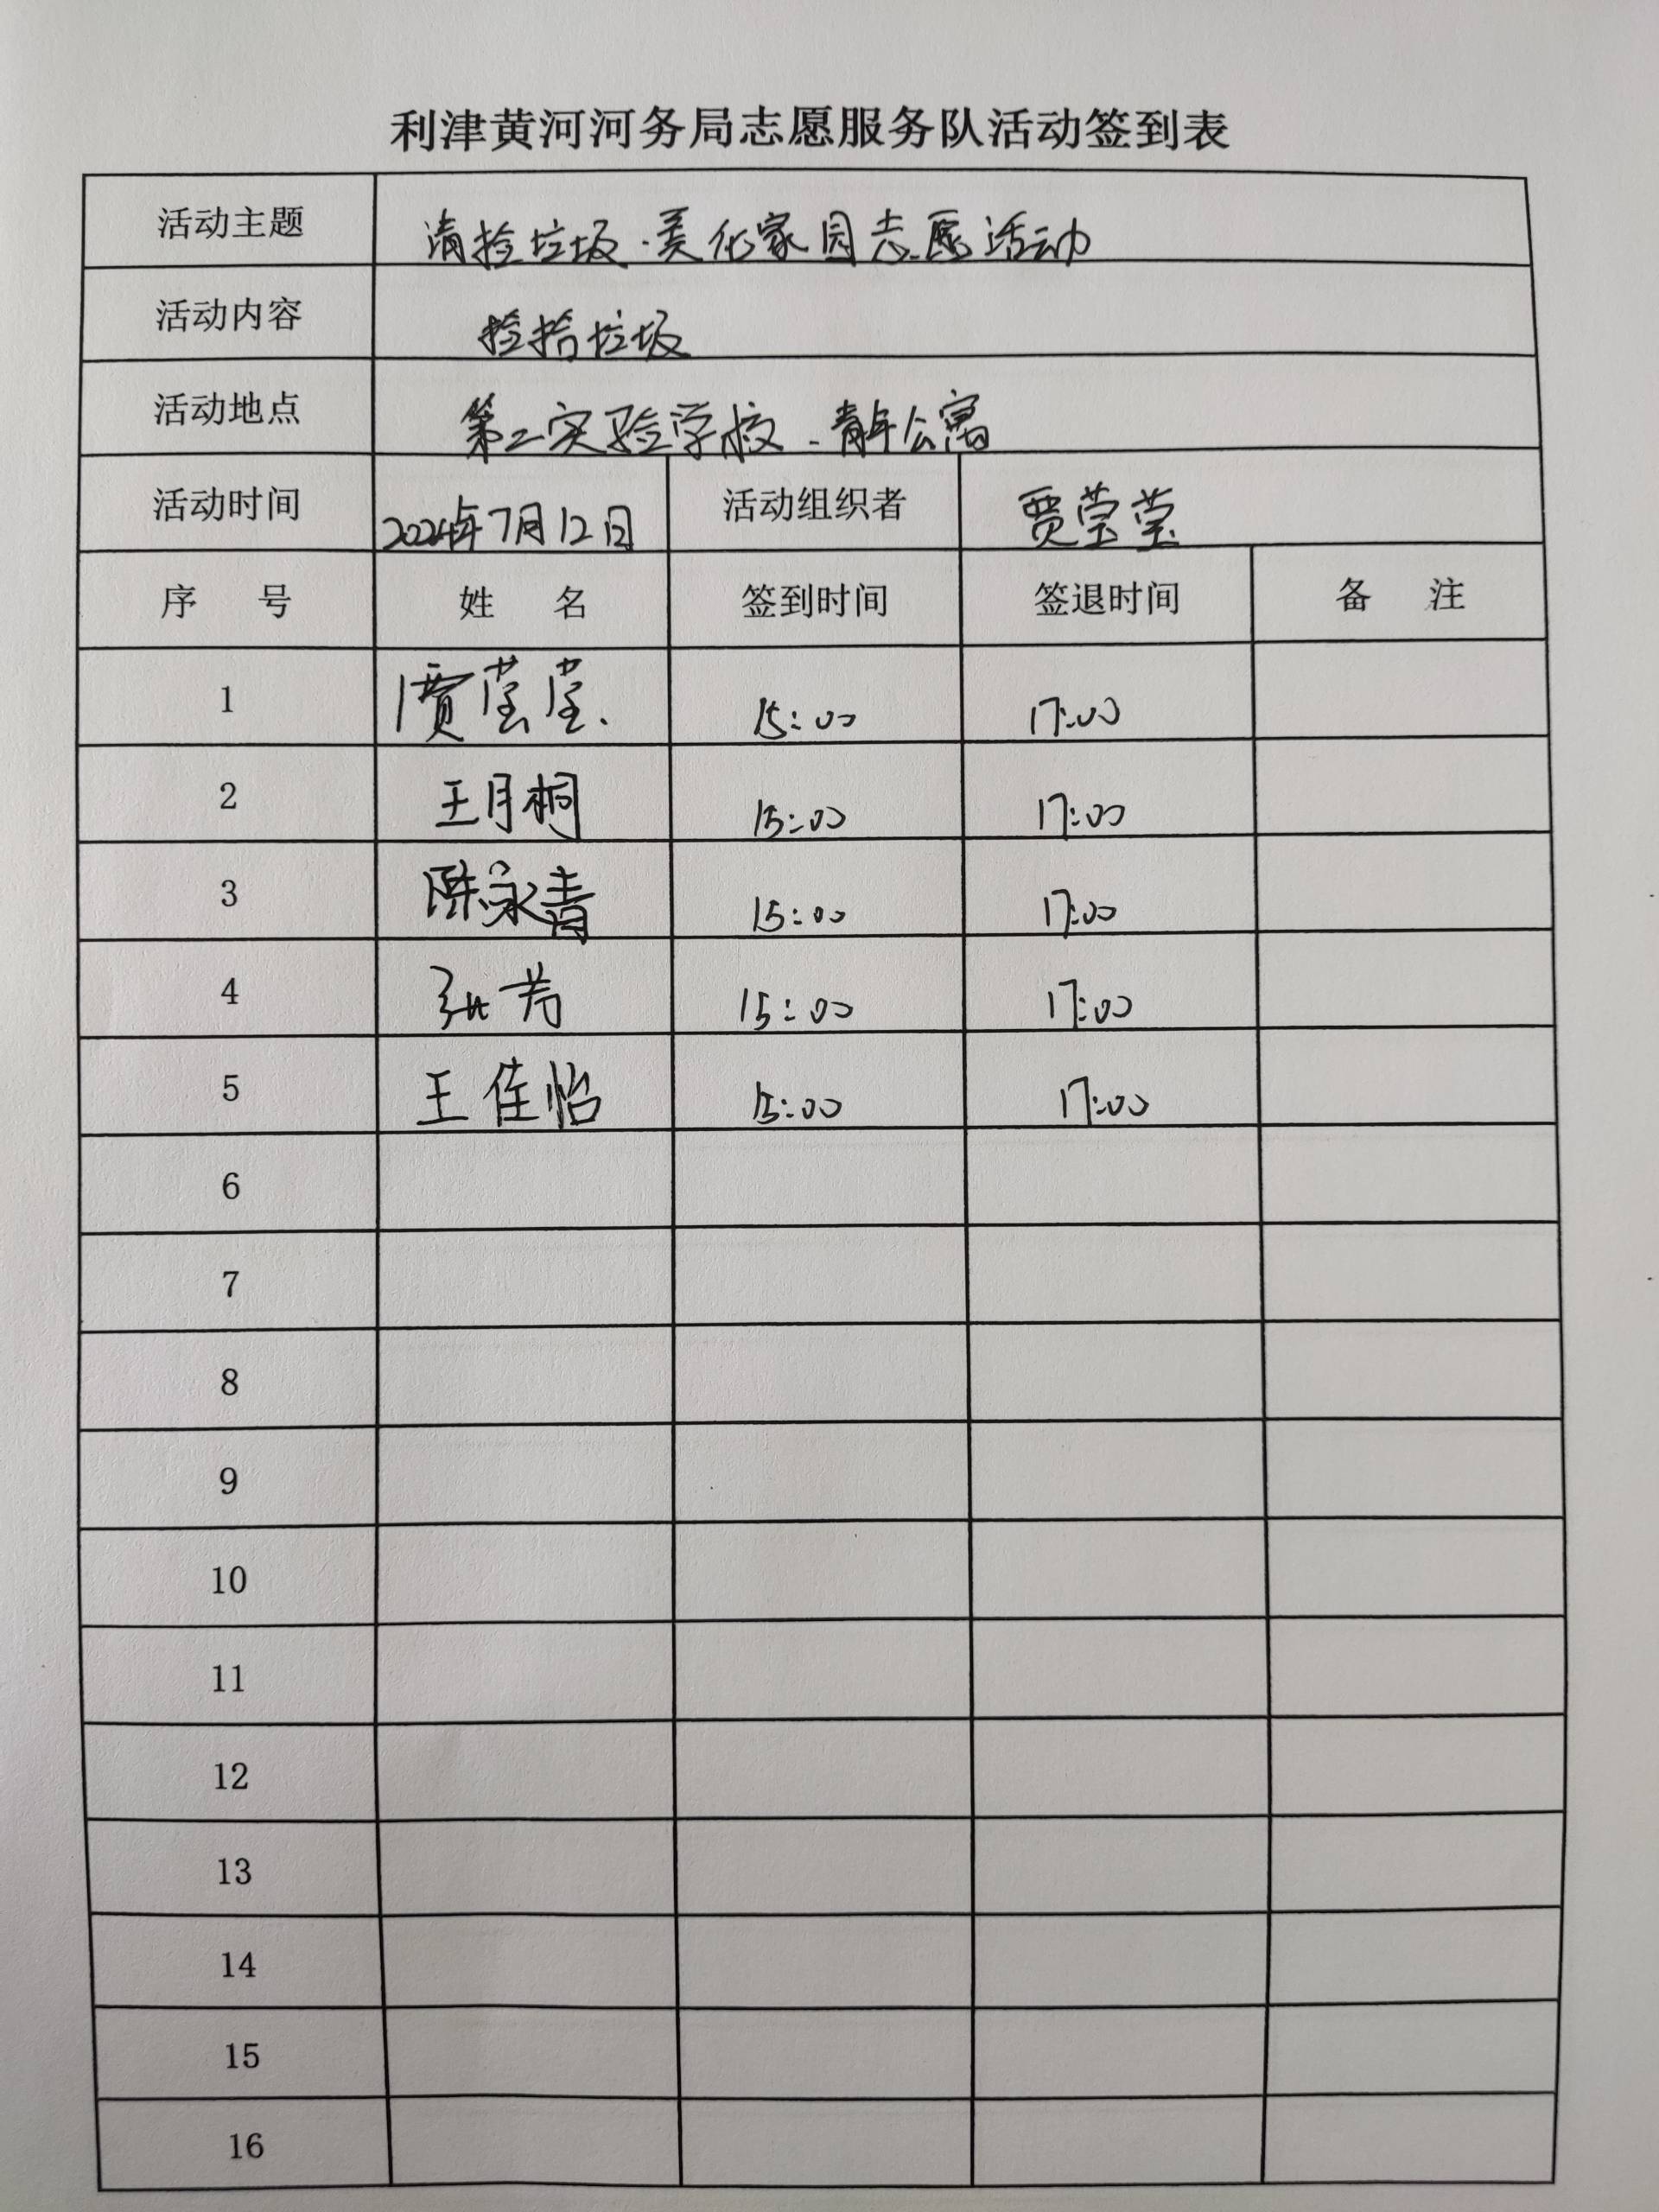 利津黄河河务局志愿服务队活动签到表
活动主题 清捡垃圾·美化家园志愿活动
活动内容 捡拾垃圾
活动地点 第二实验学校、青年公寓
活动时间 2024年7月12日 活动组织者 贾莹莹
序 号 姓 名 签到时间 签退时间 备 注
1 贾莹莹 15:00 17:00
2 王月桐 15:00 17:00
3 陈永青 15:00 17:00
4 张芳 15:00 17:00
5 王佳怡 15:00 17:00
6
7
8
9
10
11
12
13
14
15
16